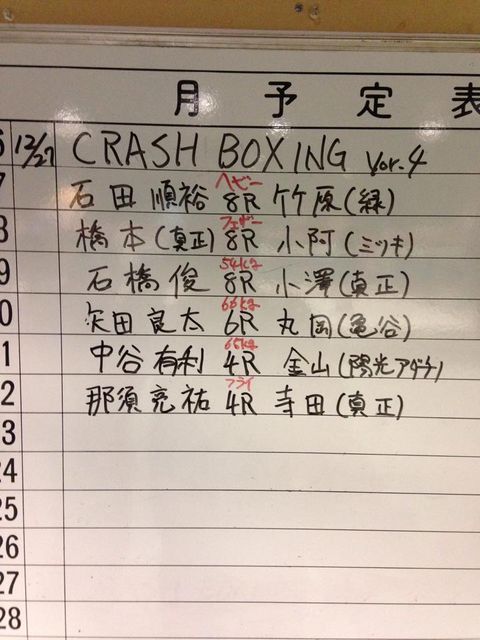 月予定表
6 12/27 CRASH BOXING Vor.4
7 石田順裕 ヘビー 8R 竹原(緑)
8 橋本(真正) フェザー 8R 小阿(ミツキ)
9 石橋俊 54kg 8R 小澤(真正)
0 矢田良太 66kg 6R 丸岡(亀谷)
1 中谷有利 65kg 4R 金山(陽光アダチ)
2 那須亮祐 フライ 4R 寺田(真正)
3
24
25
26
27
28